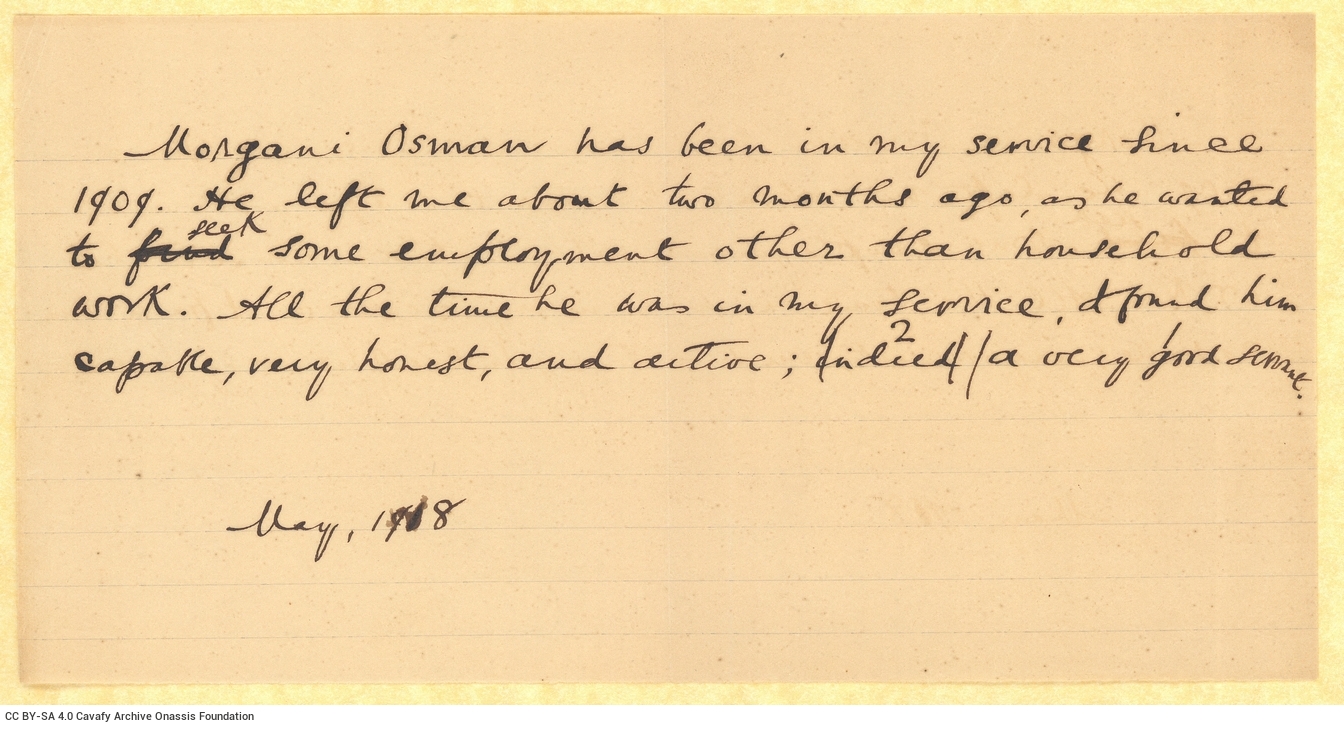 Morgani Osman has been in my service since
1909. He left me about two months ago, as he wanted
to find seek some employment other than household
work. All the time he was in my service, I found him
capable, very honest, and active; (indeed) 2 / a very good servant.
May, 1918
CC BY-SA 4.0 Cavafy Archive Onassis Foundation